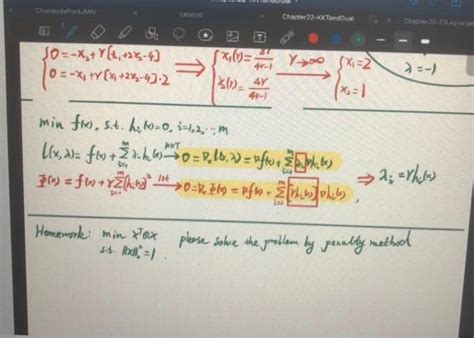 ChambollePock,JMIV
catalyst
Chapter22-KKTandDual
{0=-x₂+γ[x₁+2x₂-4]
{0=-x₁+γ[x₁+2x₂-4]·2
⟹ {x₁(γ)=8γ/(4γ-1)
{x₂(γ)=4γ/(4γ-1)
γ→∞ {x₁=2
{x₂=1
λ=-1
min f(x), s.t. hᵢ(x)=0, i=1,2,...,m
L(x,λ)=f(x)+∑ᵢ₌₁ᵐ λᵢhᵢ(x) KKT→ 0=∇ₓL(x,λ)=∇f(x)+∑ᵢ₌₁ᵐ λᵢ∇hᵢ(x)
⟹ λᵢ=γhᵢ(x)
Φ(x)=f(x)+γ∑ᵢ₌₁ᵐ[hᵢ(x)]² 1st→ 0=∇ₓΦ(x)=∇f(x)+∑ᵢ₌₁ᵐ[γhᵢ(x)]∇hᵢ(x),
Homework: min xᵀQx please solve the problem by penalty method
s.t. ||x||₂²=1